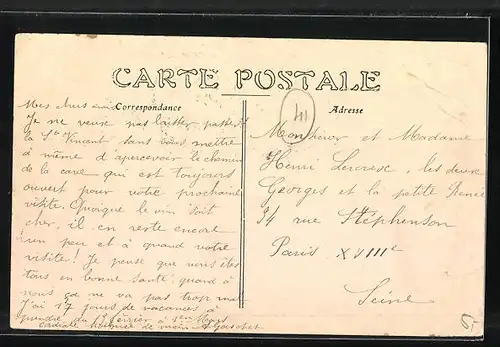 CARTE POSTALE
Correspondance
Adresse
Mes chers amis
Je ne veux pas laisser passer
la St Vincent sans vous mettre
à même d'apercevoir le chemin
de la cave qui est toujours
ouvert pour votre prochaine
visite. Quoique le vin soit
cher, il en reste encore
un peu et à quand votre
visite! Je pense que vous êtes
tous en bonne santé quand à
nous ça ne va pas trop mal
J'ai 17 jours de vacances à
prendre du 1er Février à 1er Mars
cordiale poignée de main
Monsieur et Madame
Henri les deux
Georges et la petite Renée
34 rue Stéphenson
Paris XVIIIe
Seine